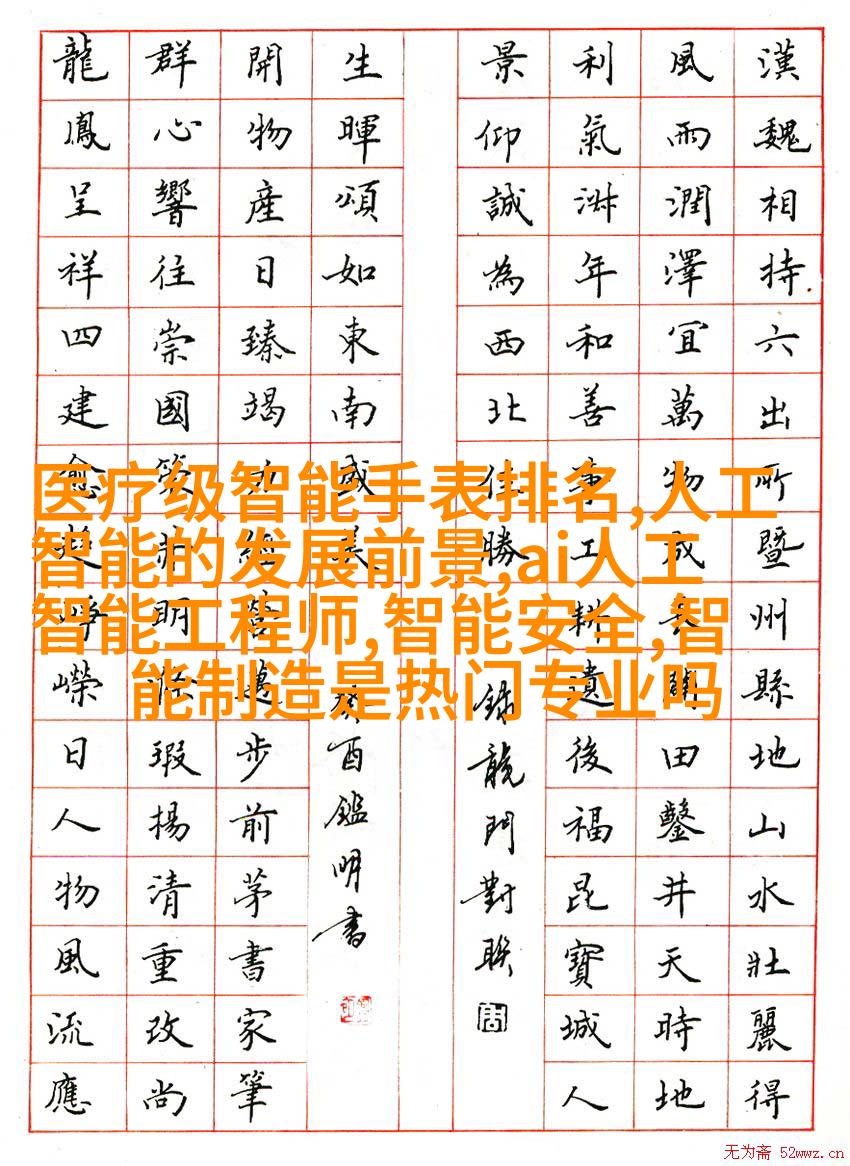 医疗级智能手表排名,人工
智能的发展前景,ai人工
智能工程师,智能安全,智
能制造是热门专业吗
漢魏相持六出所暨州縣地山水壯麗得
風雨潤澤宜萬物成長田鑿井天時地
利氣年和善事工耕遺後福昆寶城人
景仰誠為西北佳勝
錄龍門對聯
生暉頌如東南盛美
癸酉鑑明書
開物產日臻竭力經營邁步前茅書家筆
群心響往崇國策明瑕揚清重改尚
龍鳳呈祥四建愈趨崢嶸日人物風流應
无为斋 52wwz.cn